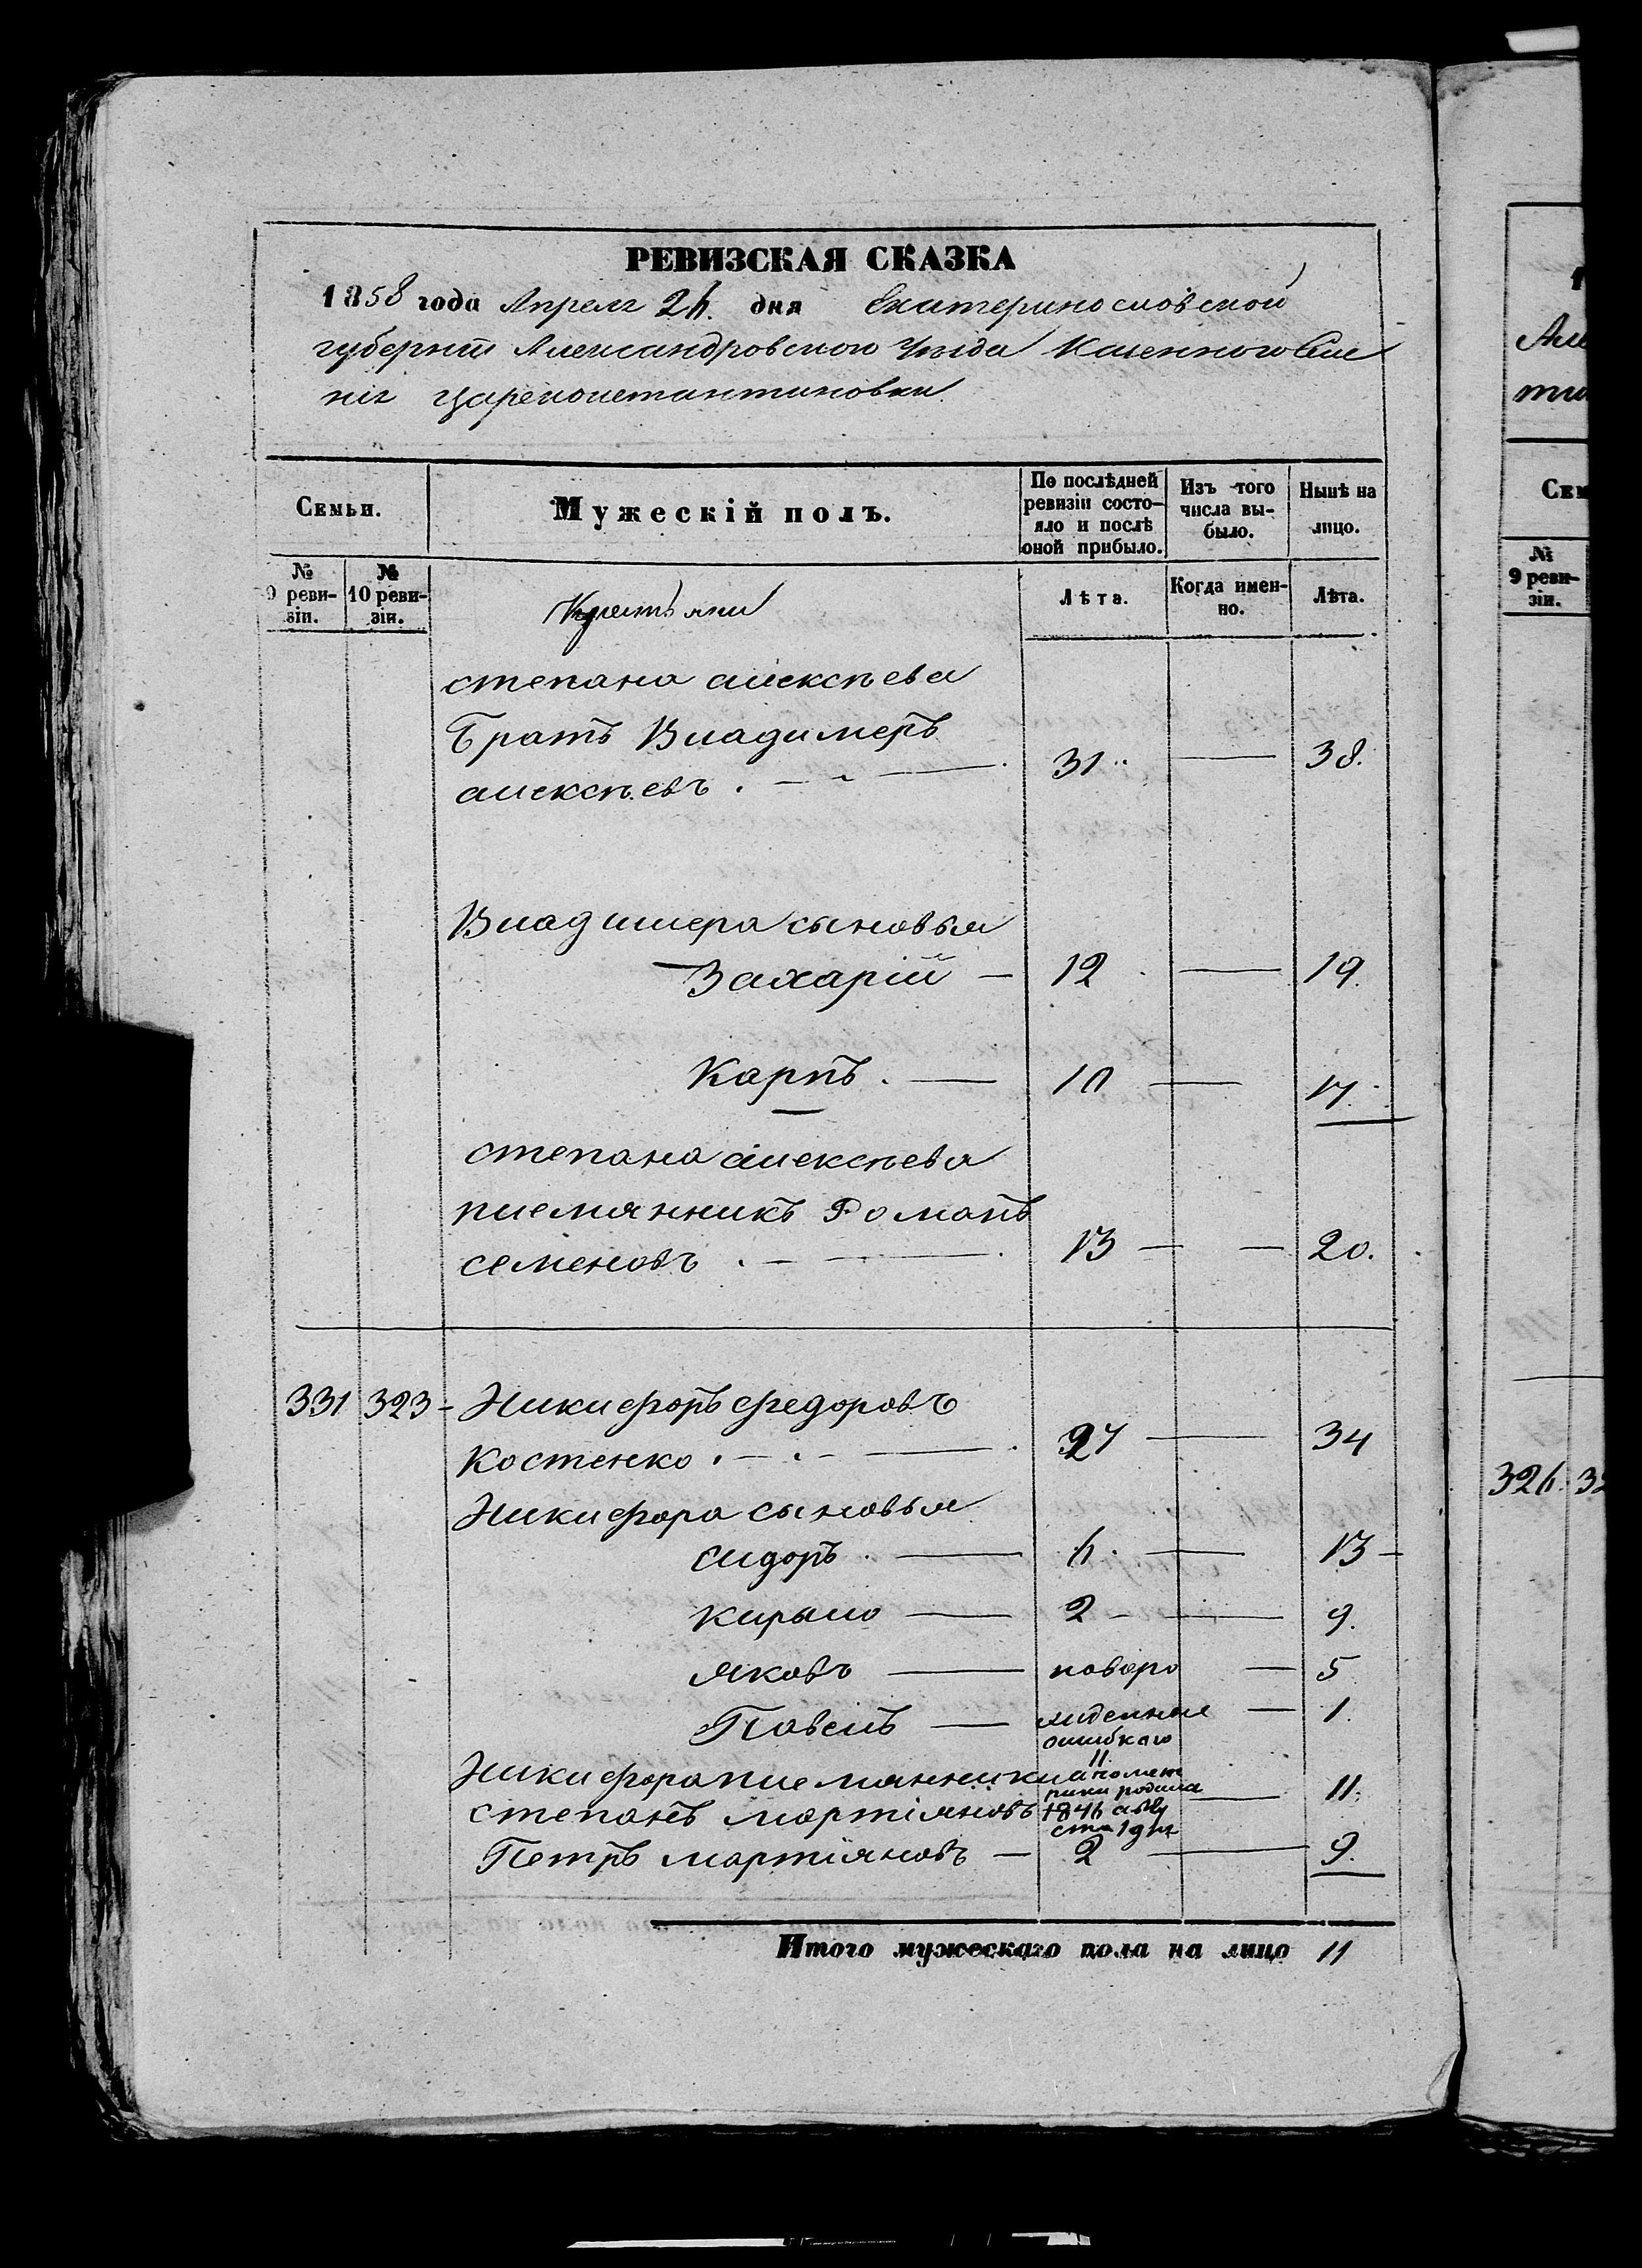 РЕВИЗСКАЯ СКАЗКА
1858 года Апреля 26. дня Екатеринословской
губернiи Александровского Уезда Казенного Селе
нiя Цареконстантиновки
Семьи.
Мужескiй полъ.
По послѣдней ревизiи состояло и послѣ оной прибыло.
Изъ того числа выбыло.
Нынѣ на лицо.
№ 9 ревизiи.
№ 10 ревизiи.
Крестьяни
Лѣта.
Когда именно.
Лѣта.
степана алексѣева
Братъ Владимеръ
алексѣевъ . — 31 — 38.
Владимера сыновья
Захарiй — 12 — 19.
Карпъ . — 10 — 17.
степана алексѣева
племянникъ Романъ
семеновъ . — 13 — 20.
331 323 - Никифоръ федоровъ
Костенко . — 27 — 34
Никифора сыновья
сидоръ . — 6. — 13 —
кирыло — 2 — 9.
яковъ — новоро — 5
Павелъ — жденныя — 1.
ошибкаю
11.
Никифора племянники а по мет
рики родила
степанъ мартiяновъ 1846 авгу — 11.
ста 1 дня
Петръ мартiяновъ — 2 — 9.
Итого мужескаго пола на лицо 11
1
Але
ти
Сем
№ 9 ревизiи.
326. 3